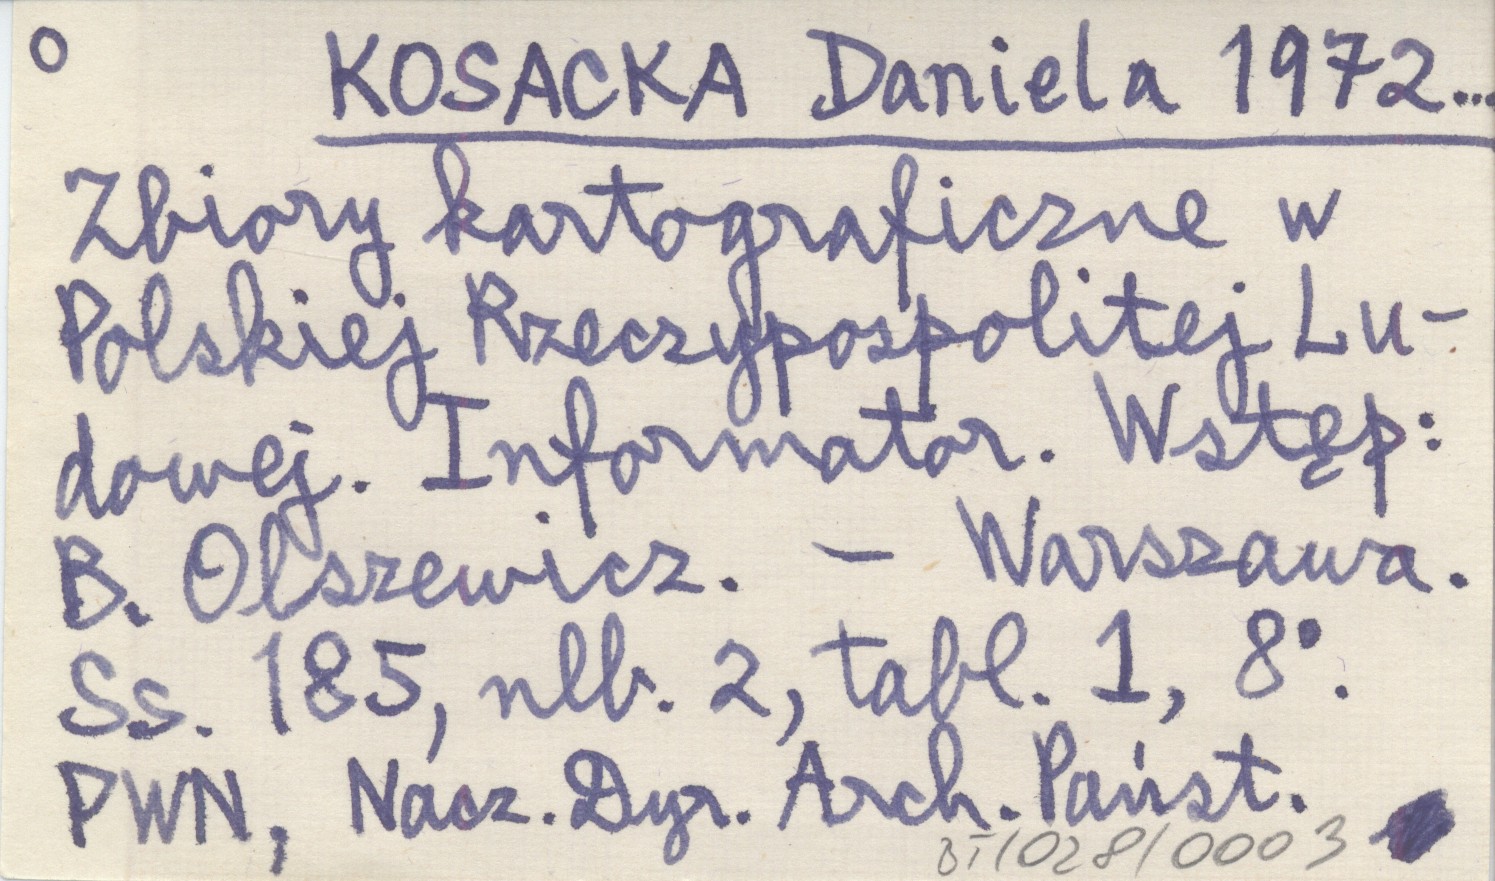 O KOSACKA Daniela 1972...
Zbiory kartograficzne w
Polskiej Rzeczypospolitej Lu-
dowej. Informator. Wstęp:
B. Olszewicz. — Warszawa.
Ss. 185, nlb. 2, tabl. 1, 8°.
PWN, Nacz. Dyr. Arch. Państ.
BT/028/0003